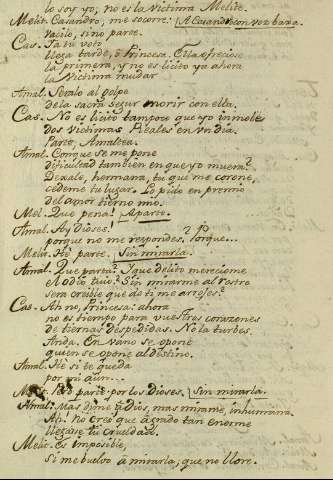 lo soy yo, no es la Victima Melite.
Melit. Casandro, me socorre: A Casandro con voz baxa.
vacilo, sino parte.
Cas. Ya tu voto
llega tarde, ò Princesa. Ella se frecio
la primera, y no es licito ya ahora
la Victima mudar
Amal. Sera lo al golpe
de la sacra segur morir con ella.
Cas. No es licito tampoco que yo inmole
dos victimas Reales en un dia.
Parte, Amaltea.
Amal. Conque se me pone
dificultad tambien en que yo muera?
Dexale, hermana, tu que me corone,
cedeme tu lugar. Lo pido en premio
del amor tierno mio.
Mel. Que pena! Aparte.
Amal. Ay Dioses!
porque no me respondes? Porque...
Melit. Hè parte. Sin mirarla.
Amal. Que parta? Y que delito mereciome
el odio tuyo? Sin mirarme al rostro
sera creible que de ti me arrojes?
Cas. Ah no, Princesa: ahora
no es tiempo para vuestros corazones
de tiernas despedidas. No la turbes.
Anda. En vano se opone
quien se opone al destino.
Amal. Hè si te queda
por mi aun...
Melit. parte por los Dioses. Sin mirarla.
Amal. Mas dime à Dios, mas mirame, inhumana.
Ah! No creì que à grado tan enorme
llegase tu crueldad.
Melit. Es imposible,
si me buelvo à mirarla, que no llore.